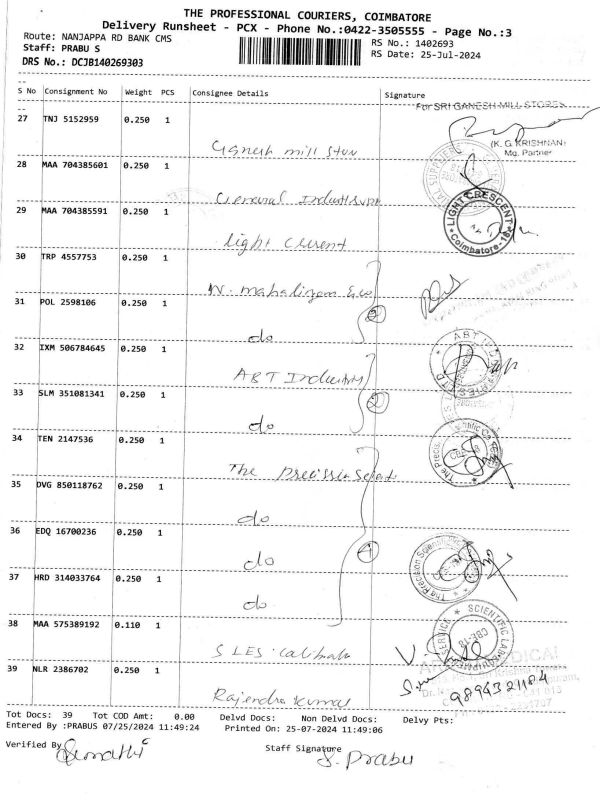 THE PROFESSIONAL COURIERS, COIMBATORE
Delivery Runsheet - PCX - Phone No.:0422-3505555 - Page No.:3
Route: NANJAPPA RD BANK CMS
RS No.: 1402693
Staff: PRABU S
RS Date: 25-Jul-2024
DRS No.: DCJB140269303
S No Consignment No Weight PCS Consignee Details Signature
For SRI GANESH MILL STORES
27 TNJ 5152959 0.250 1
Ganesh mill
(K. G. KRISHNAN)
Mg. Partner
28 MAA 704385601 0.250 1
General
29 MAA 704385591 0.250 1
light
LIGHT CRESCENT
Coimbatore-18
30 TRP 4557753 0.250 1
N. mahalingam & co
31 POL 2598106 0.250 1
do
2
32 IXM 506784645 0.250 1
ABT Industry
ABT
33 SLM 351081341 0.250 1
do
2
34 TEN 2147536 0.250 1
The
The Precis
35 DVG 850118762 0.250 1
do
36 EDQ 16700236 0.250 1
do
4
The Precision Scientific
37 HRD 314033764 0.250 1
do
38 MAA 575389192 0.110 1
SLES
SCIENTIFIC LAB EQUIPMENT SERVICE
CBE-18
39 NLR 2386702 0.250 1
Rajendra Kumar
9894321184
Tot Docs: 39 Tot COD Amt: 0.00 Delvd Docs: Non Delvd Docs: Delvy Pts:
Entered By :PRABUS 07/25/2024 11:49:24 Printed On: 25-07-2024 11:49:06
Verified By Sumathi
Staff Signature S. Prabu